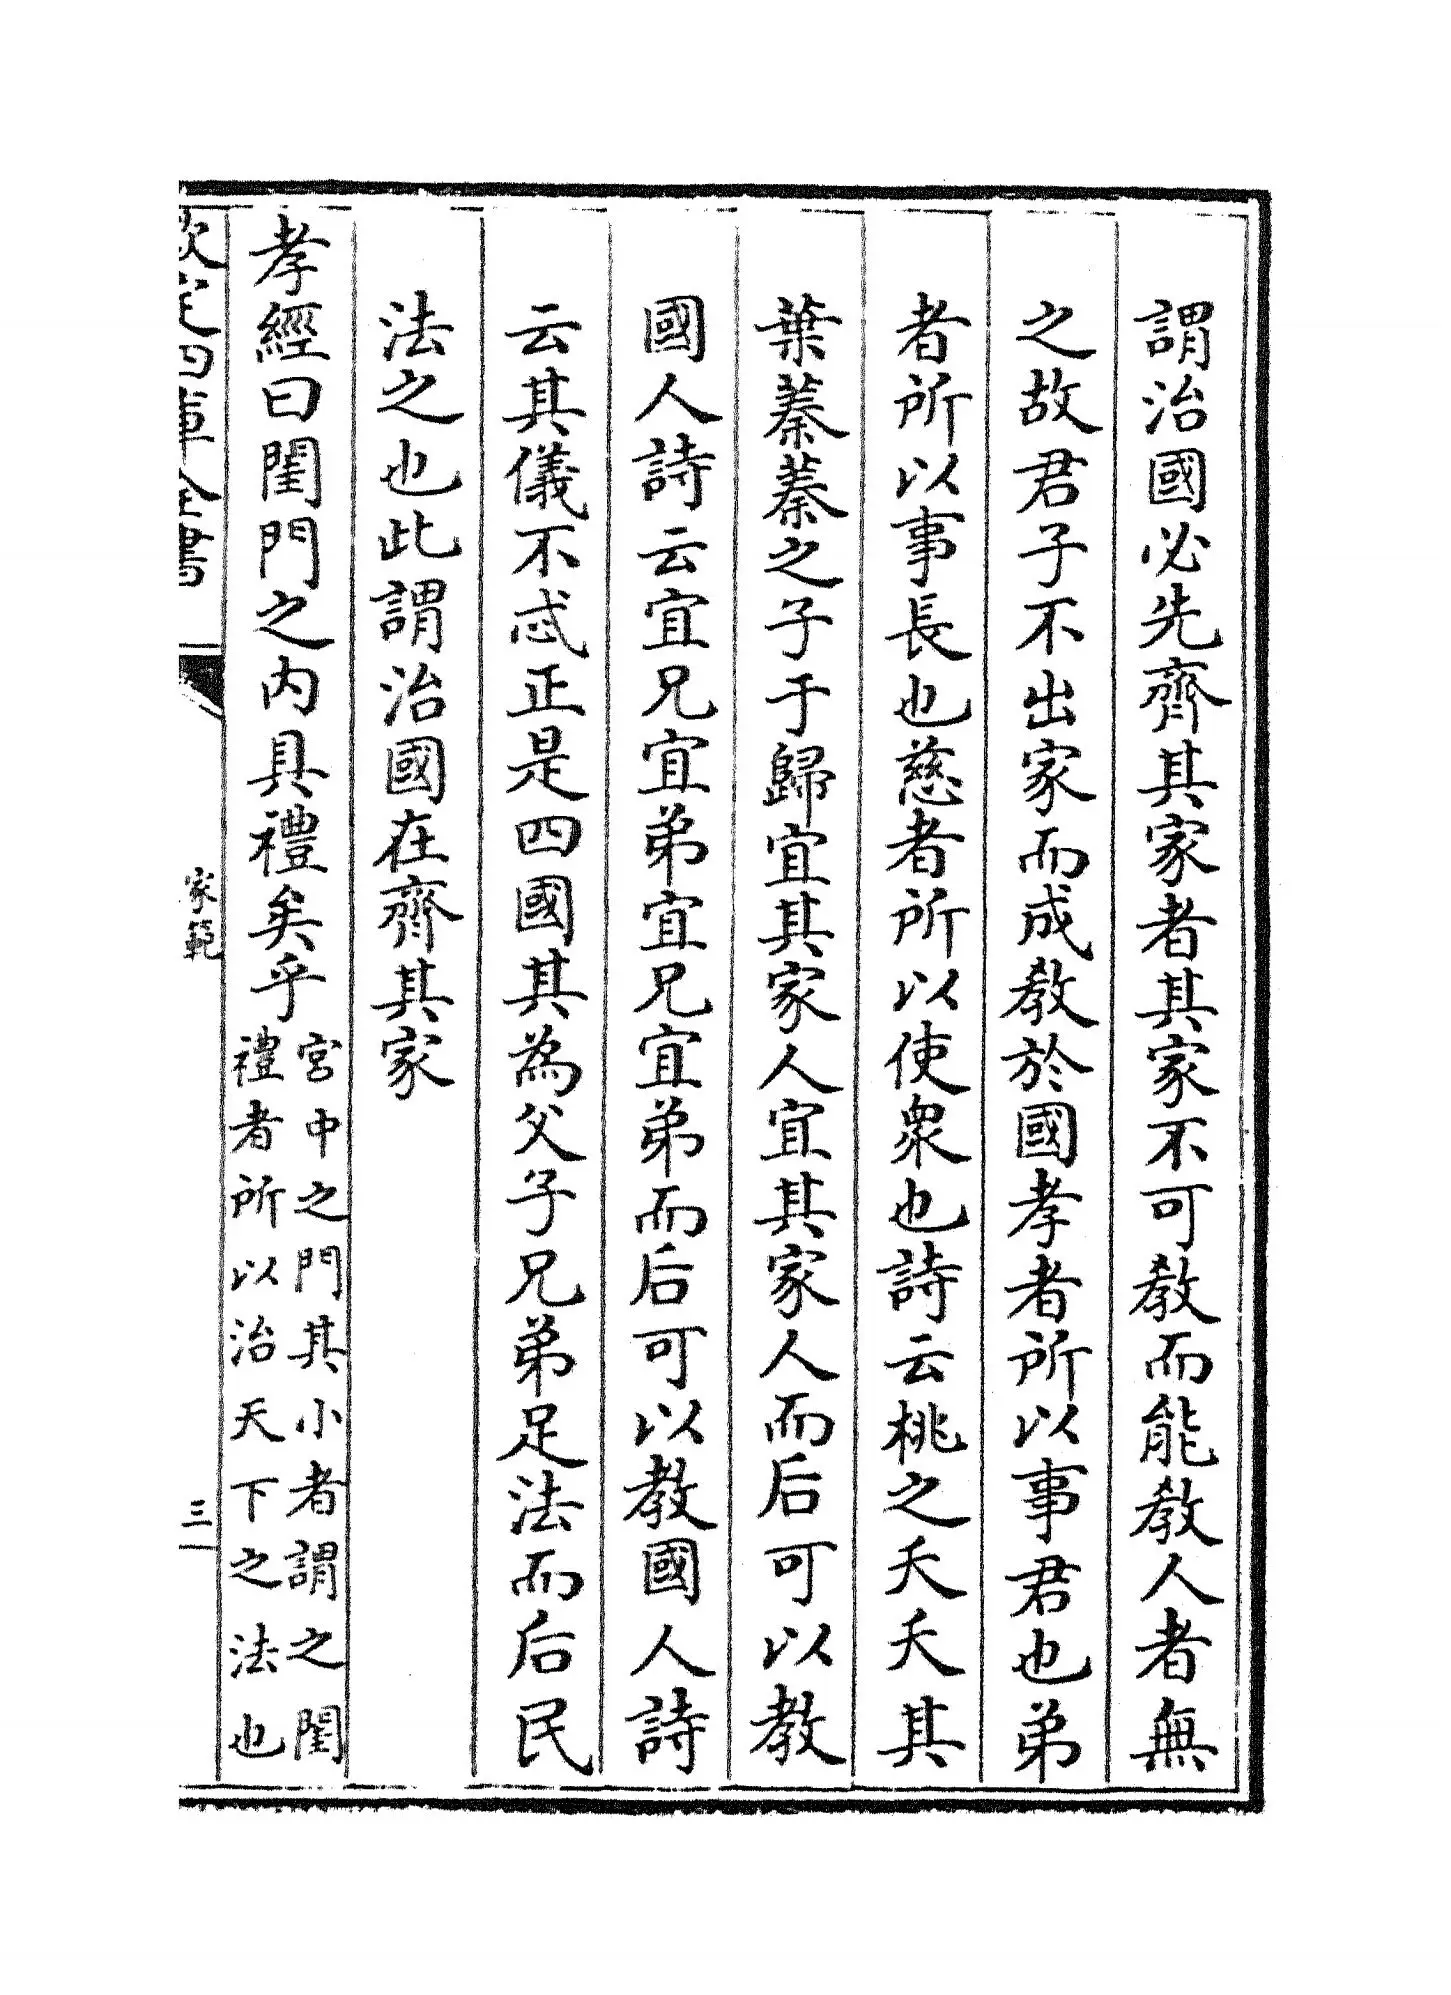 謂治國必先齊其家者其家不可教而能教人者無
之故君子不出家而成教於國孝者所以事君也弟
者所以事長也慈者所以使衆也詩云桃之夭夭其
葉蓁蓁之子于歸宜其家人宜其家人而后可以教
國人詩云宜兄宜弟宜兄宜弟而后可以教國人詩
云其儀不忒正是四國其為父子兄弟足法而后民
法之也此謂治國在齊其家
孝經曰閨門之内具禮矣乎
宫中之門其小者謂之閨
禮者所以治天下之法也
欽定四庫全書
家範
三